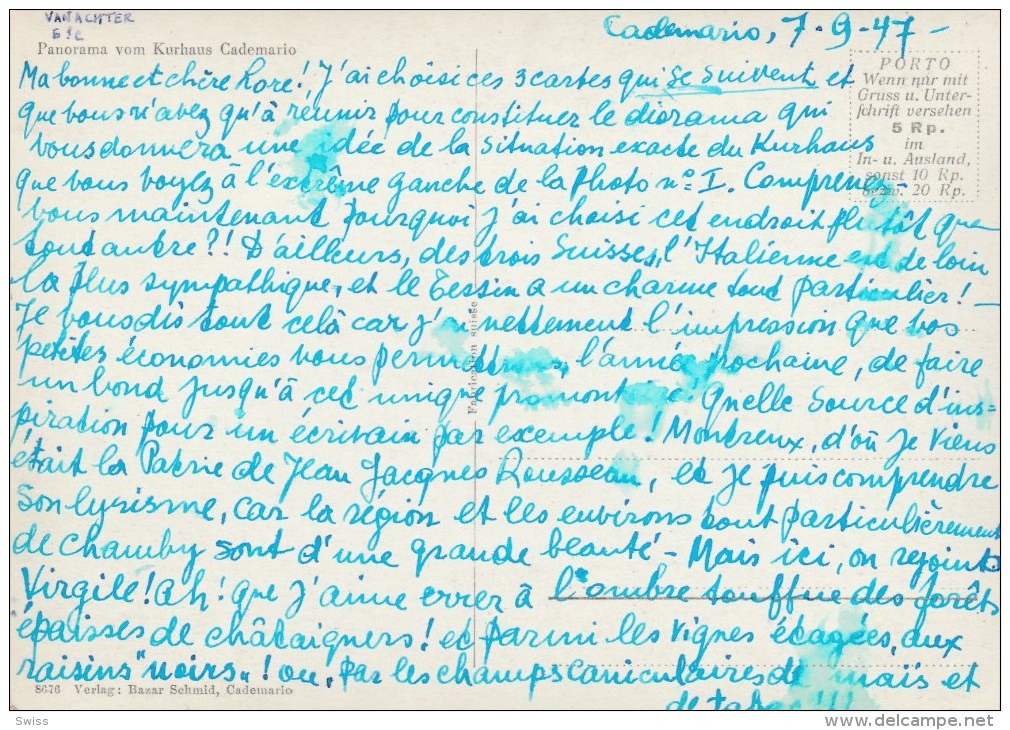 VANACHTER
Cademario, 7-9-47-
Panorama vom Kurhaus Cademario
PORTO
Wenn nur mit
Gruss u. Unter-
schrift versehen
5 Rp.
im
In- u. Ausland,
sonst 10 Rp.
bezw. 20 Rp.
Ma bonne et chère Lore! J'ai choisi ces 3 cartes qui se suivent et
que vous n'avez qu'à réunir pour constituer le diorama qui
vous donnera une idée de la situation exacte du Kurhaus
que vous voyez à l'extrême gauche de la Photo n° I. Comprenez-
vous maintenant pourquoi j'ai choisi cet endroit plutôt que
tout autre?! D'ailleurs, des trois Suisses, l'Italienne est de loin
la plus sympathique, et le Tessin a un charme tout particulier! -
Je vous dis tout celà car j'ai nettement l'impression que vos
petites économies vous permettrons, l'année prochaine, de faire
un bond jusqu'à cet unique promontoire. Quelle source d'ins=
piration pour un écrivain par exemple! Montreux, d'où je viens
était la Patrie de Jean Jacques Rousseau, et je puis comprendre
son lyrisme, car la région et les environs tout particulièrement
de Chamby sont d'une grande beauté - Mais ici, on rejoint
Virgile! Ah! que j'aime errer à l'ombre touffue des forêts
épaisses de châtaigners! et parmi les vignes étagées, aux
raisins "noirs"! ou, par les champs caniculaires de maïs et
de tabac!!!
Fabrication suisse
8676 Verlag: Bazar Schmid, Cademario
Swiss
www.delcampe.net